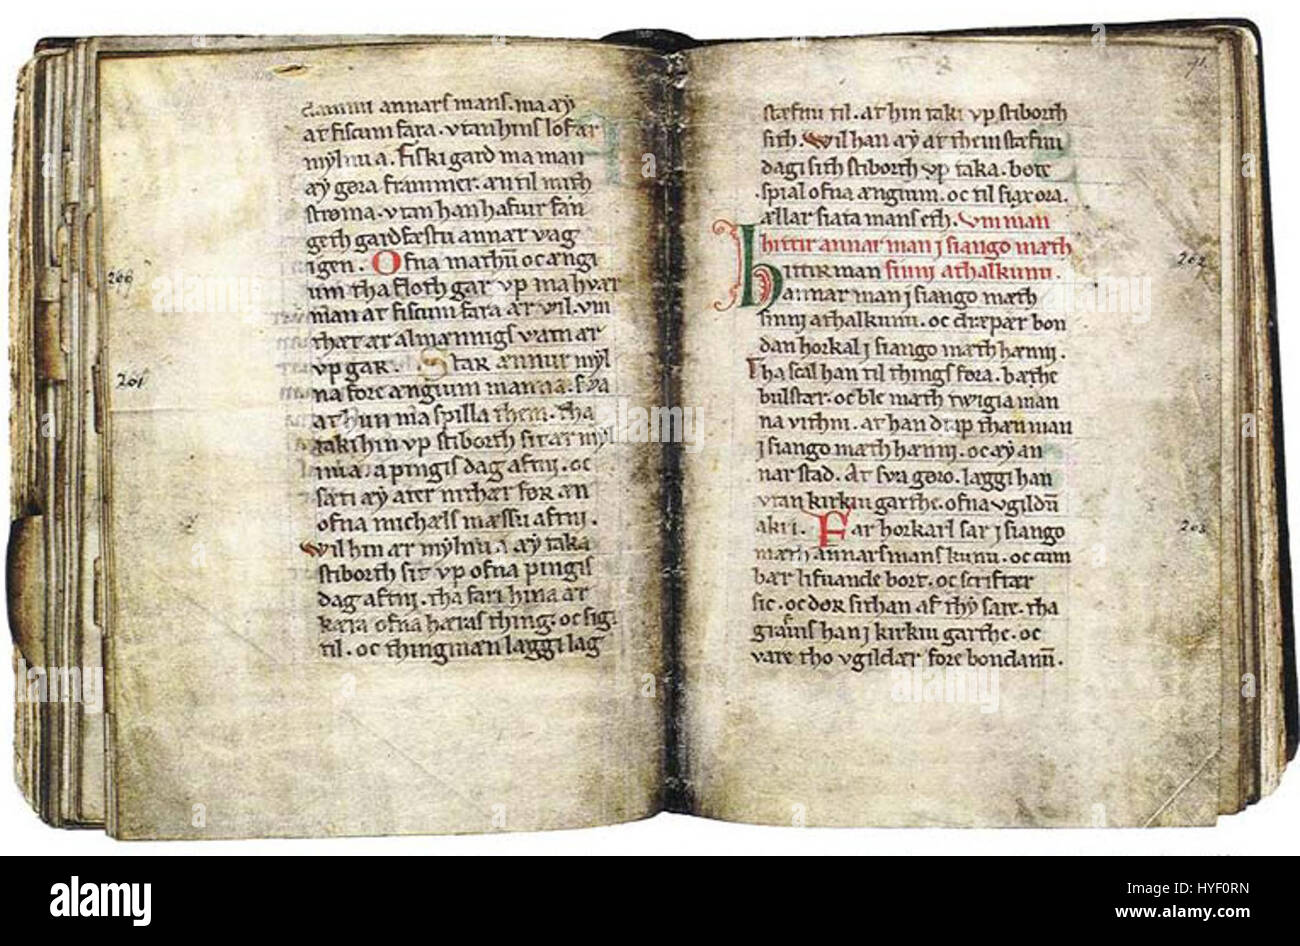 damm annars mans. ma æÿ
at fiscum fara. vtan hins lof ær
mÿlnu a. Fiski gard ma man
æÿ gøra frammer. æn til mith
strøma. vtan han hafuir fan
geth gardfæstu annær vægh
igen. Ofna mathū oc ængi
um tha floth gar vp ma hvær
man at fiscum fara ær vil. vm
thæt ær almænnigs vatn ær
vp gar. Star ænnur mÿl
na fore ængium manna. sva
at hun ma spilla them. tha
taki hin vp stiborth sit ær mÿl
nu a. a pingis dag aftni. oc
sæti æÿ ater nithær før æn
ofna michæls mæssu aftni.
Wil hin ær mÿlnu a æÿ taka
stiborth sit vp ofna pingis
dag aftni. tha fari hina ær
kæra ofna hæræs thing. oc sigi
til. oc thingmæn læggi lag
266
261
71
stæfnu til. at hin taki vp stiborth
sith. Wil han æÿ at them stæfnu
dagi sith stiborth vp taka. bøte
spial ofna ængium. oc til siax øra.
ællar siata mans eth. Vm man
hittir annar man i siango mæth
sinni athalkunu.
Hittir man
annar man i siango mæth
sinni athalkunu. oc dræpær bon
dan horkal i siango mæth hænni.
Tha scal han til things føra. bæthe
bulstær. oc ble mæth twigia man
na vithni. at han drap thæn man
i siango mæth hænni. oc æÿ an
nar stad. Ær sva gøro. læggi han
vtan kirkiu garthe. ofna vgildū
akri. Far horkarl sar i siango
mæth annars mans kunu. oc cum
bær lifuande bort. oc scriftær
sic. oc dør sithan af thÿ sare. tha
gravis han i kirkiu garthe. oc
vare tho vgildær fore bondanū.
262
263
alamy
alamy
Image ID: HYF0RN
www.alamy.com